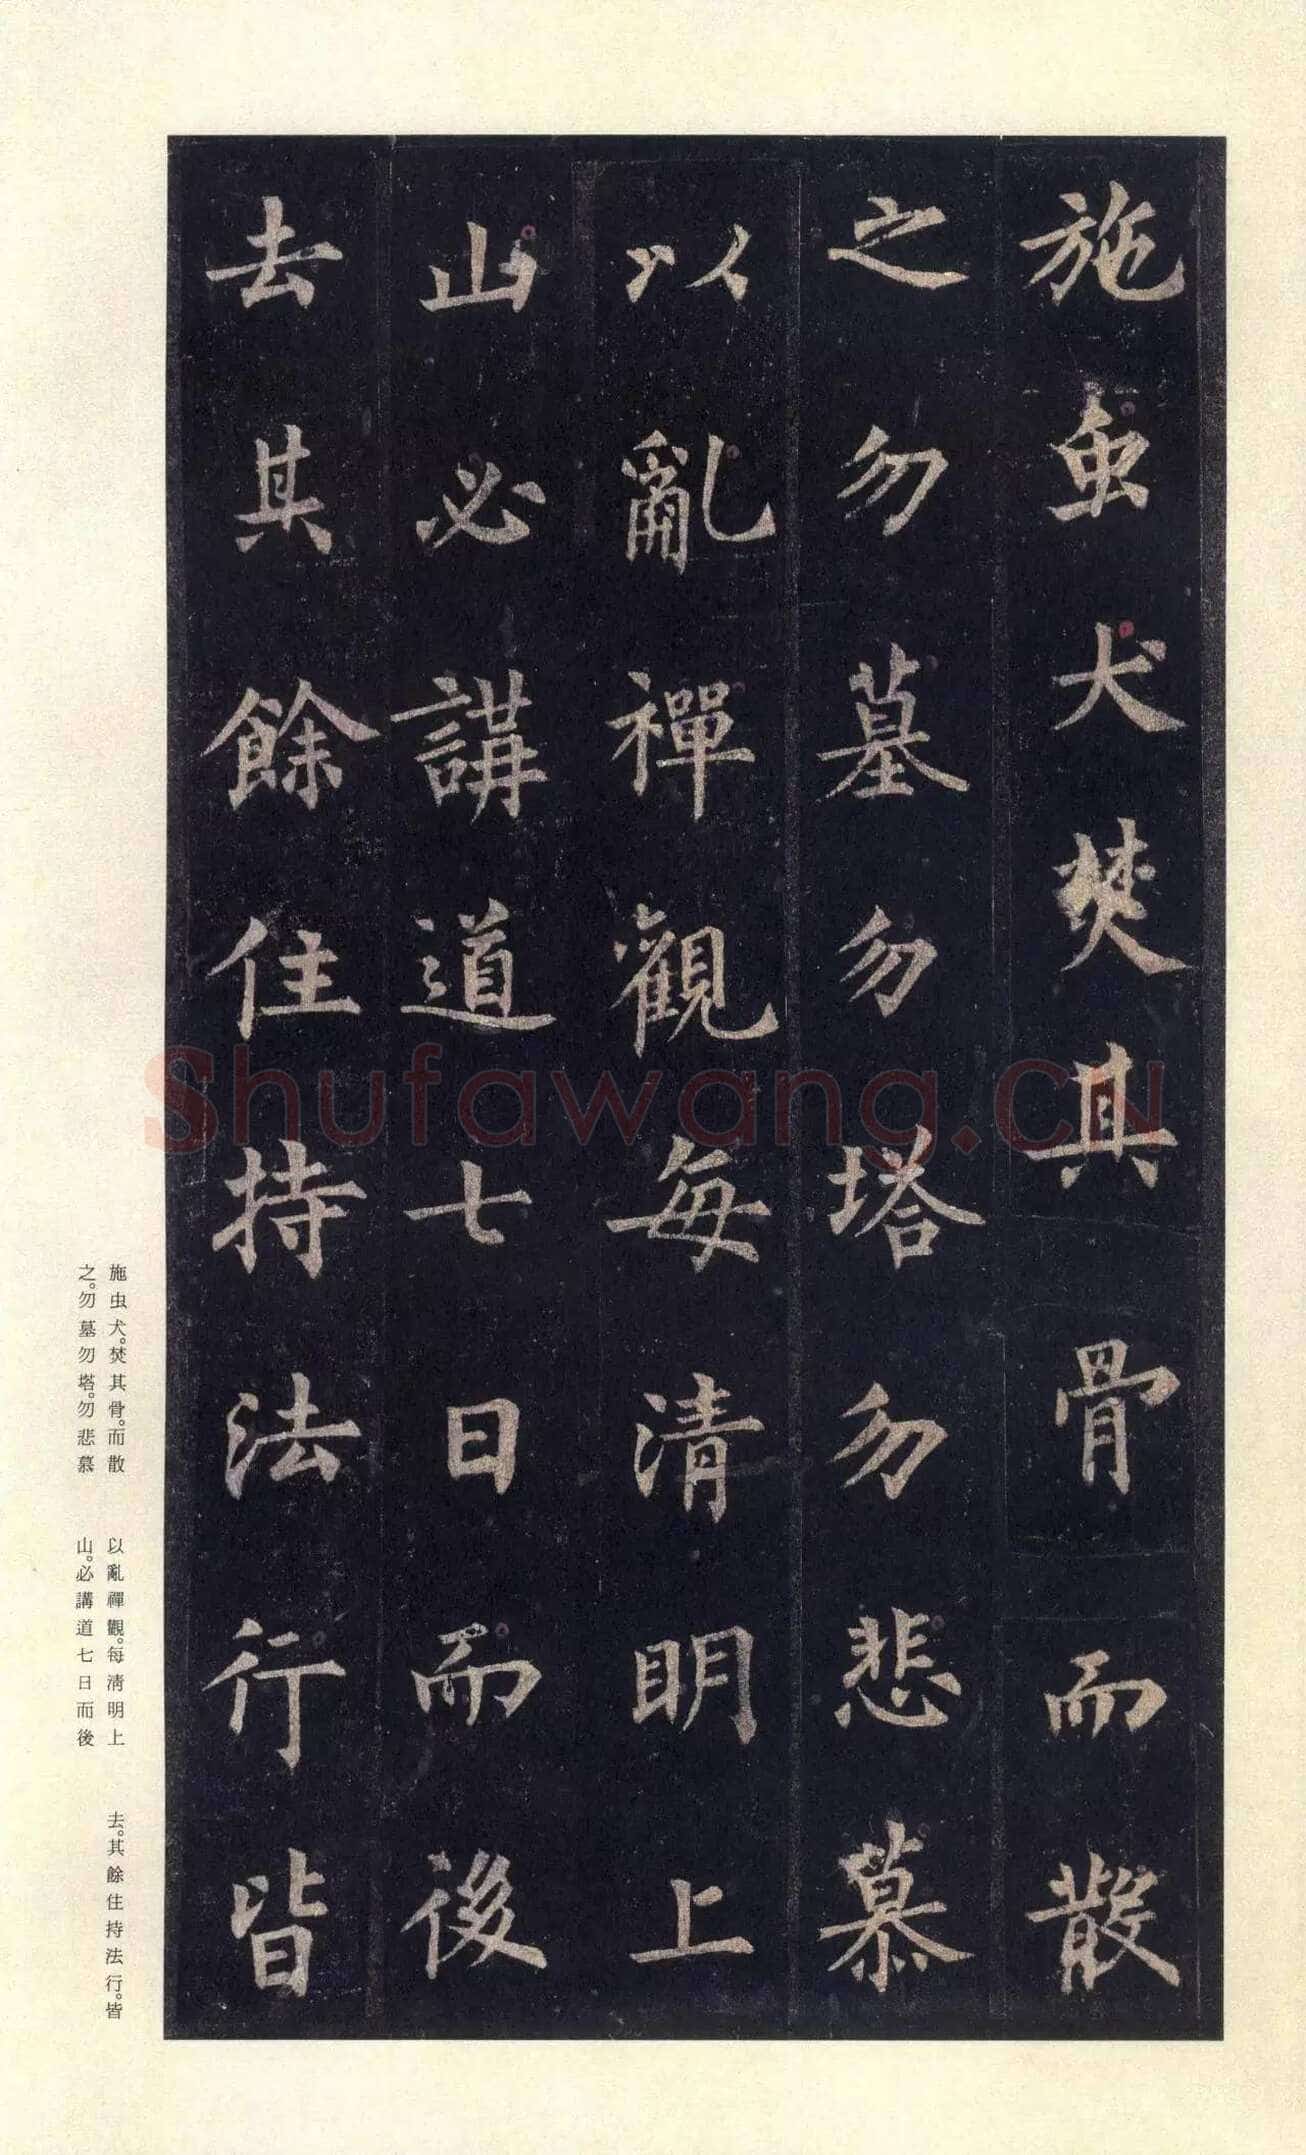 施虫犬焚其骨而散
之勿墓勿塔勿悲慕
以亂禪觀每清明上
山必講道七日而後
去其餘住持法行皆
Shufawang.CN
施虫犬。焚其骨。而散
之。勿墓勿塔。勿悲慕
以亂禪觀。每淸明上
山。必講道七日而後
去。其餘住持法行。皆